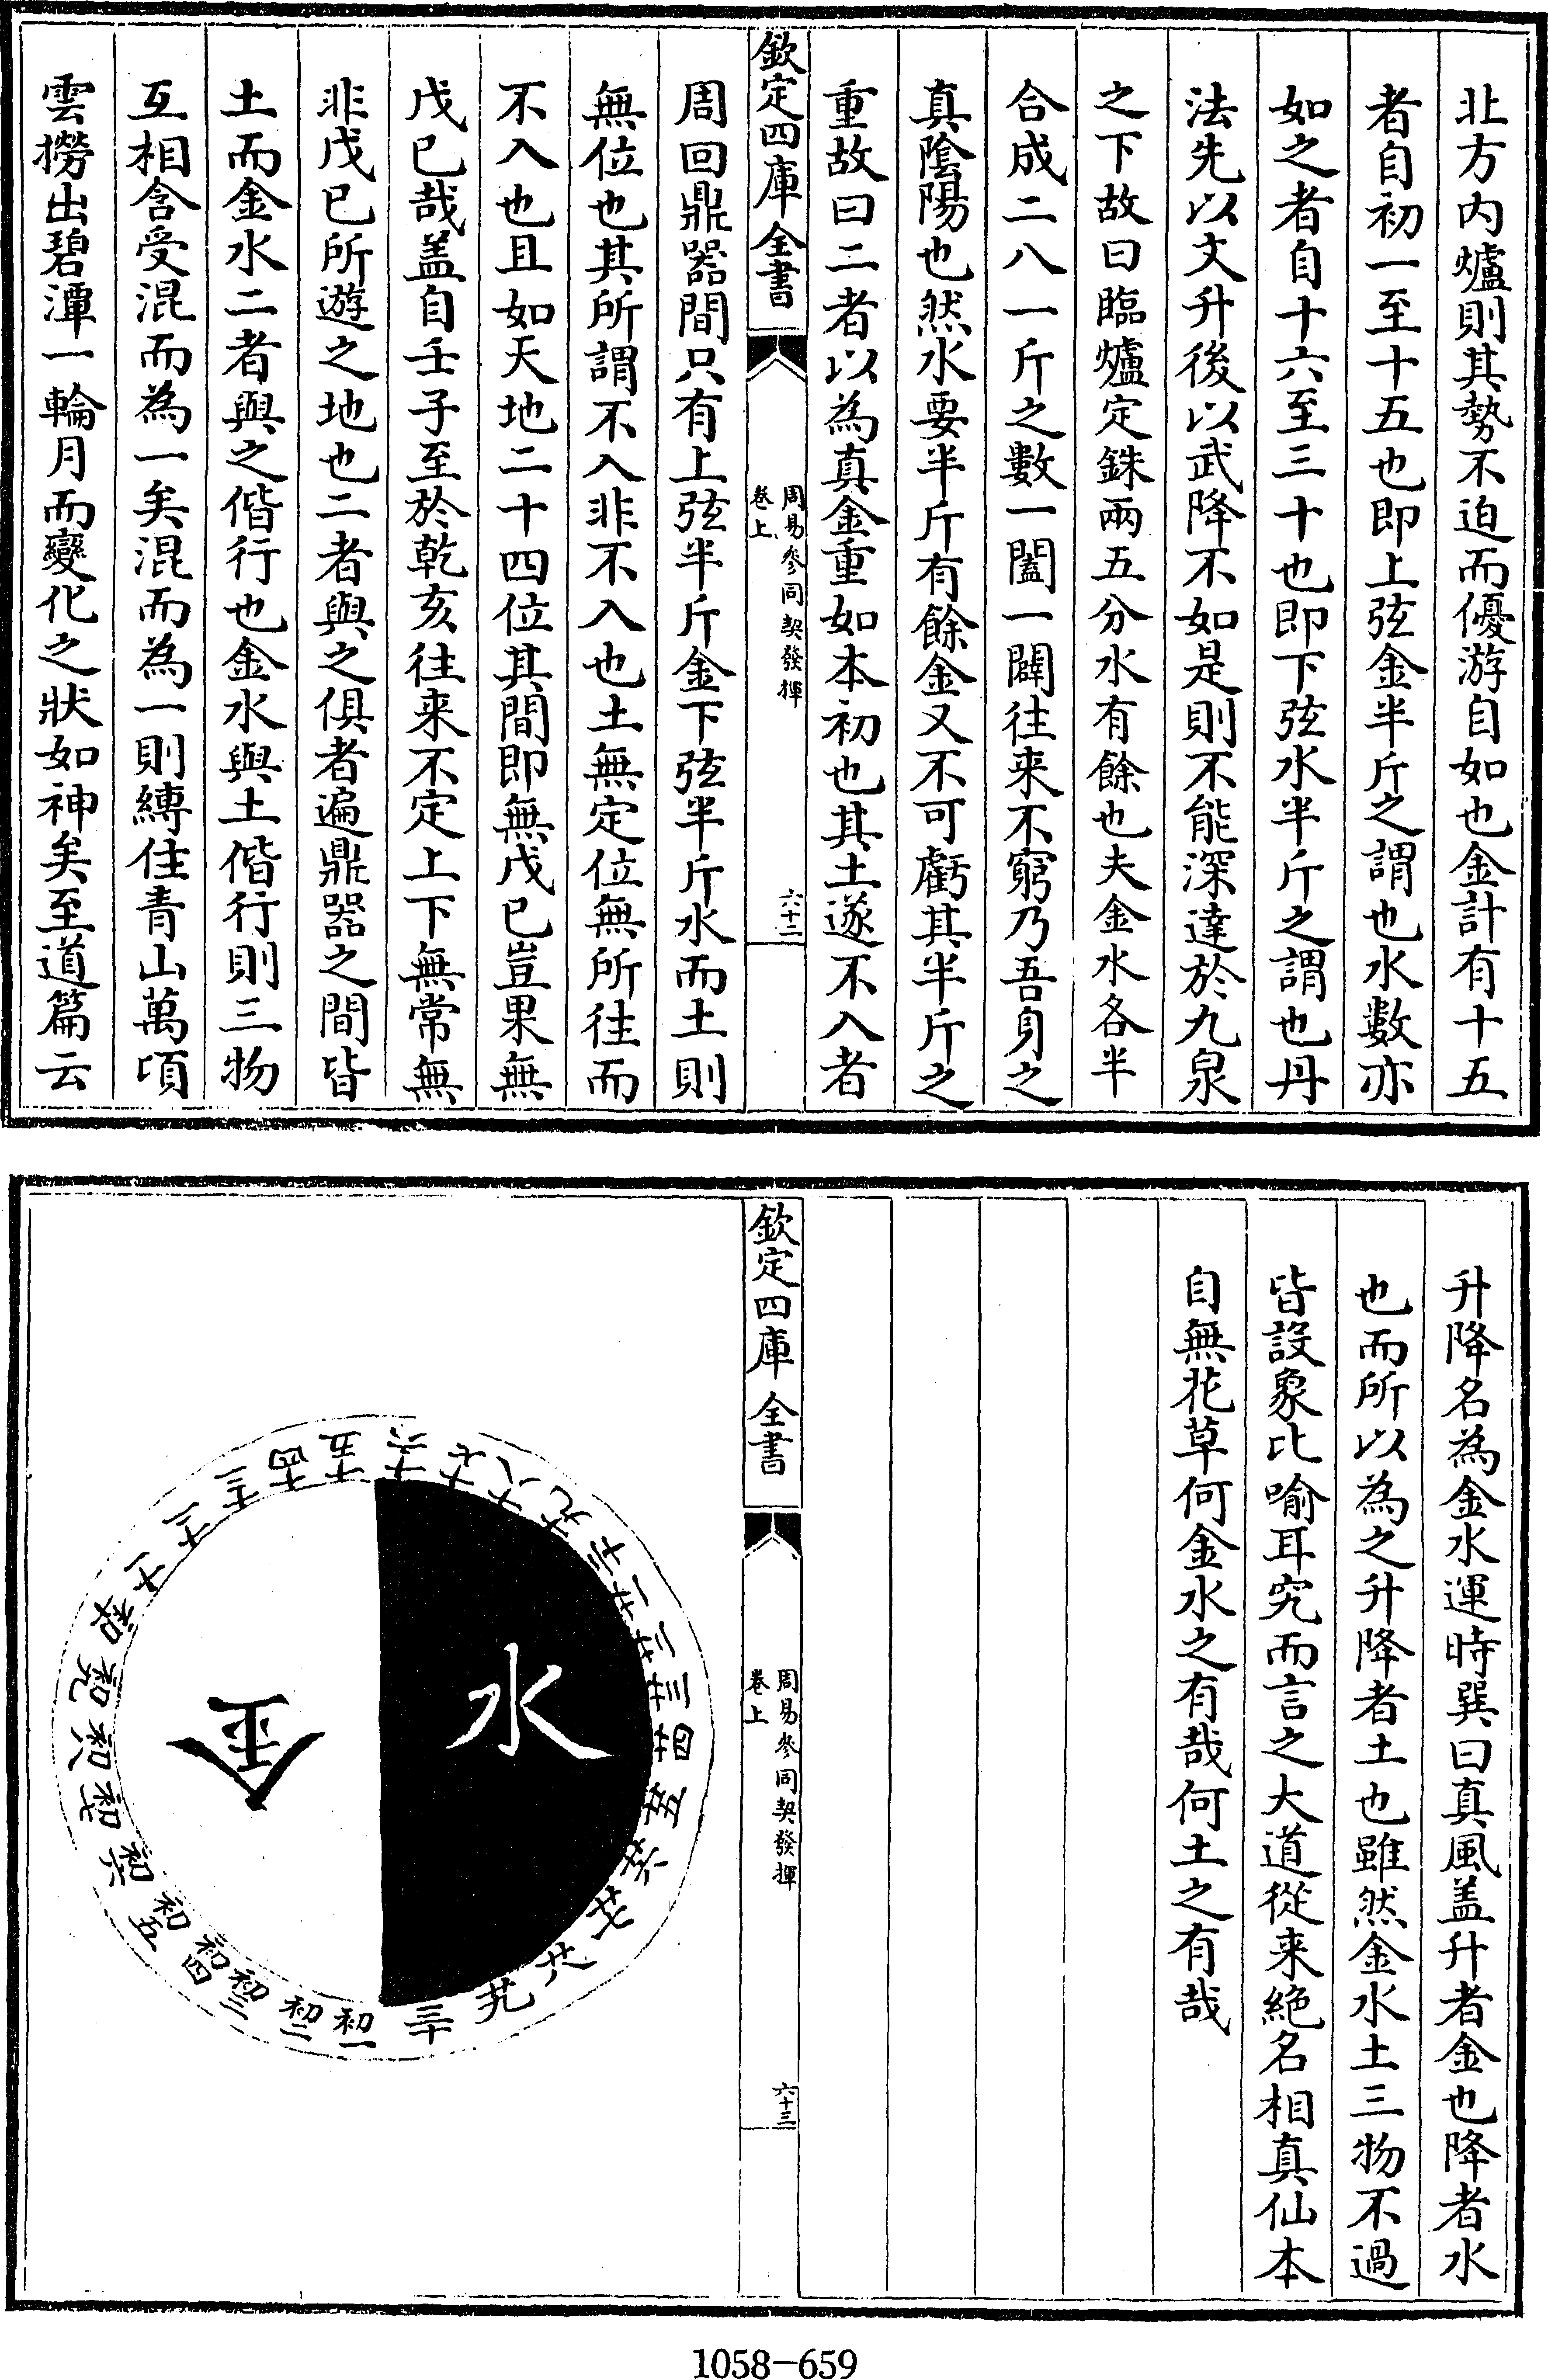 北方内爐則其勢不迫而優游自如也金計有十五
者自初一至十五也即上弦金半斤之謂也水數亦
如之者自十六至三十也即下弦水半斤之謂也丹
法先以文升後以武降不如是則不能深達於九泉
之下故曰臨爐定銖兩五分水有餘也夫金水各半
合成二八一斤之數一闔一闢往来不窮乃吾身之
真隂陽也然水要半斤有餘金又不可虧其半斤之
重故曰二者以為真金重如本初也其土遂不入者
欽定四庫全書
周易參同契發揮
卷上
六十二
周回鼎器間只有上弦半斤金下弦半斤水而土則
無位也其所謂不入非不入也土無定位無所往而
不入也且如天地二十四位其間即無戊已豈果無
戊已哉盖自壬子至於乾亥往来不定上下無常無
非戊已所遊之地也二者與之俱者遍鼎器之間皆
土而金水二者與之偕行也金水與土偕行則三物
互相含受混而為一矣混而為一則縛住青山萬頃
雲撈出碧潭一輪月而變化之狀如神矣至道篇云
升降名為金水運時巽曰真風盖升者金也降者水
也而所以為之升降者土也雖然金水土三物不過
皆設象比喻耳究而言之大道從来絶名相真仙本
自無花草何金水之有哉何土之有哉
欽定四庫全書
周易參同契發揮
卷上
六十三
水
金
初一
初二
初三
初四
初五
初六
初七
初八
初九
初十
十一
十二
十三
十四
十五
十六
十七
十八
十九
二十
廿一
廿二
廿三
廿四
廿五
廿六
廿七
廿八
廿九
三十
1058-659